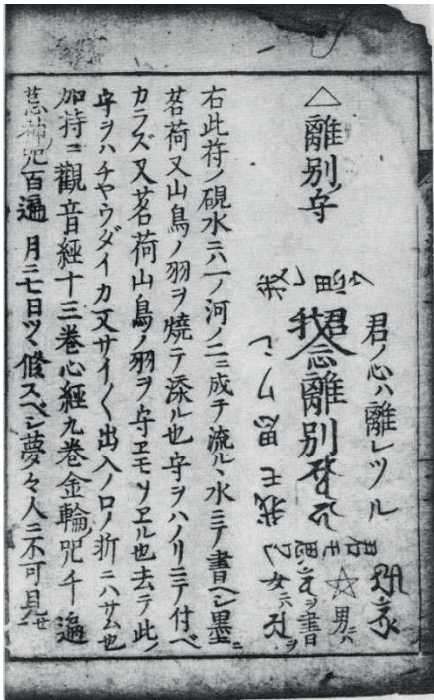 △離別ノ守
君ノ心ハ離レツル
君
我念離別
君モ思
我モ思
☆男ニハ
ヲ書
女ニハ
右此符ノ硯水ニハ一ノ河ノ二ニ成テ流ルヽ水ニテ書ヘシ墨ニ
茗荷又山鳥ノ羽ヲ焼テ添ル也守ヲハノリニテ付ベ
カラズ又茗荷山鳥ノ羽ヲ守ヱモソヱル也去テ此ノ
守ヲハチヤウダイカ又サイ〱出入ノ口ノ折ニハサム也
加持ニ觀音經十三巻心經九巻金輪咒千遍
慈救咒百遍 月ニ七日ツヽ修スベシ夢々人ニ不可見セ